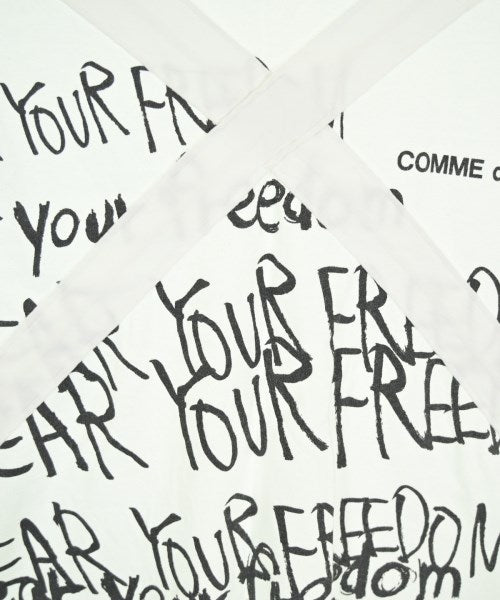 YOUR FREEDOM
COMME d
your freedom
EAR YOUR FREED
EAR YOUR FREED
EAR YOUR FREEDOM
your freedom